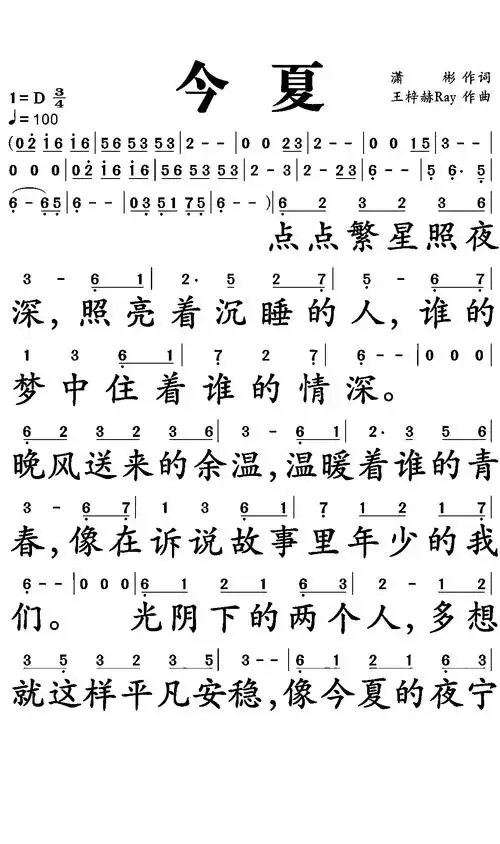 今夏
潇 彬 作词
1=D 3/4
王梓赫Ray 作曲
♩=100
(02̇ 1̇6 1̇6|56 53 53|2 - -|0 0 23|02̇ 1̇6 1̇6|56 53 53|2 - -|0 0 15|3 - -|
0 0 0|02̇ 1̇6 1̇6|56 53 53|2 - 3|2 - 23|6̣ - -|5 6· 5̣|
6̣ - 6̣5̣|6̣ - -|03 5̣1 7̣5̣|6̣ - -)|6̣ 2 3 2 3 6̣|
点点繁星照夜
3 - 6̣ 1|2· 5̣ 2 7̣|5̣ - 6̣ 7̣|
深,照亮着沉睡的人,谁的
1 3 6̣ 1|7̣ 2 7̣|6̣ - -|0 0 0|
梦中住着谁的情深。
6̣ 2 3 2 3 6̣|3 - 6̣ 1|2· 3 5 6|
晚风送来的余温,温暖着谁的青
3 - 6̣ 7̣|1 3 6̣ 1|7̣ 1 2 1 7̣|
春,像在诉说故事里年少的我
6̣ - -|0 0 0|6̣ 1 2 1 6̣ 3|2 - 1 2|
们。 光阴下的两个人,多想
3 5̣ 3 2 3 5̣|3 - -|6̣ 1 2 1 6̣ 3|
就这样平凡安稳,像今夏的夜宁